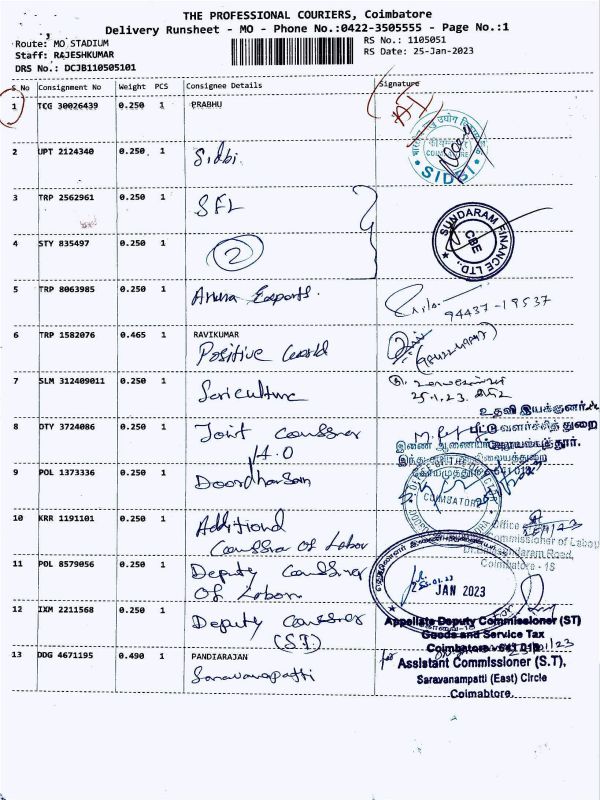 THE PROFESSIONAL COURIERS, Coimbatore
Delivery Runsheet - MO - Phone No.:0422-3505555 - Page No.:1
Route: MO STADIUM
RS No.: 1105051
Staff: RAJESHKUMAR
RS Date: 25-Jan-2023
DRS No.: DCJB110505101
S No Consignment No Weight PCS Consignee Details Signature
1 TCG 30026439 0.250 1 PRABHU
2 UPT 2124340 0.250 1 Sidbi
SIDBI
3 TRP 2562961 0.250 1 SFL
4 STY 835497 0.250 1 2
SUNDARAM FINANCE LTD.
CBE
5 TRP 8063985 0.250 1 Anura Exports.
94437-19537
6 TRP 1582076 0.465 1 RAVIKUMAR
Positive World
7 SLM 312409011 0.250 1 Sericulture
25.1.23
உதவி இயக்குனர்
பட்டு வளர்ச்சித் துறை
8 DTY 3724086 0.250 1 Joint
H.O
9 POL 1373336 0.250 1 Doordharsan
COIMBATORE
10 KRR 1191101 0.250 1 Additional
of Labor
Office
Commissioner of Labou
Road,
Coimbatore - 18
11 POL 8579056 0.250 1 Deputy
Of Labour
JAN 2023
12 IXM 2211568 0.250 1 Deputy
(S.T)
Appellate Deputy Commissioner (ST)
Goods and Service Tax
Coimbatore - 641 018
13 DDG 4671195 0.490 1 PANDIARAJAN
Saravanapatti
for Assistant Commissioner (S.T),
Saravanampatti (East) Circle
Coimabtore.